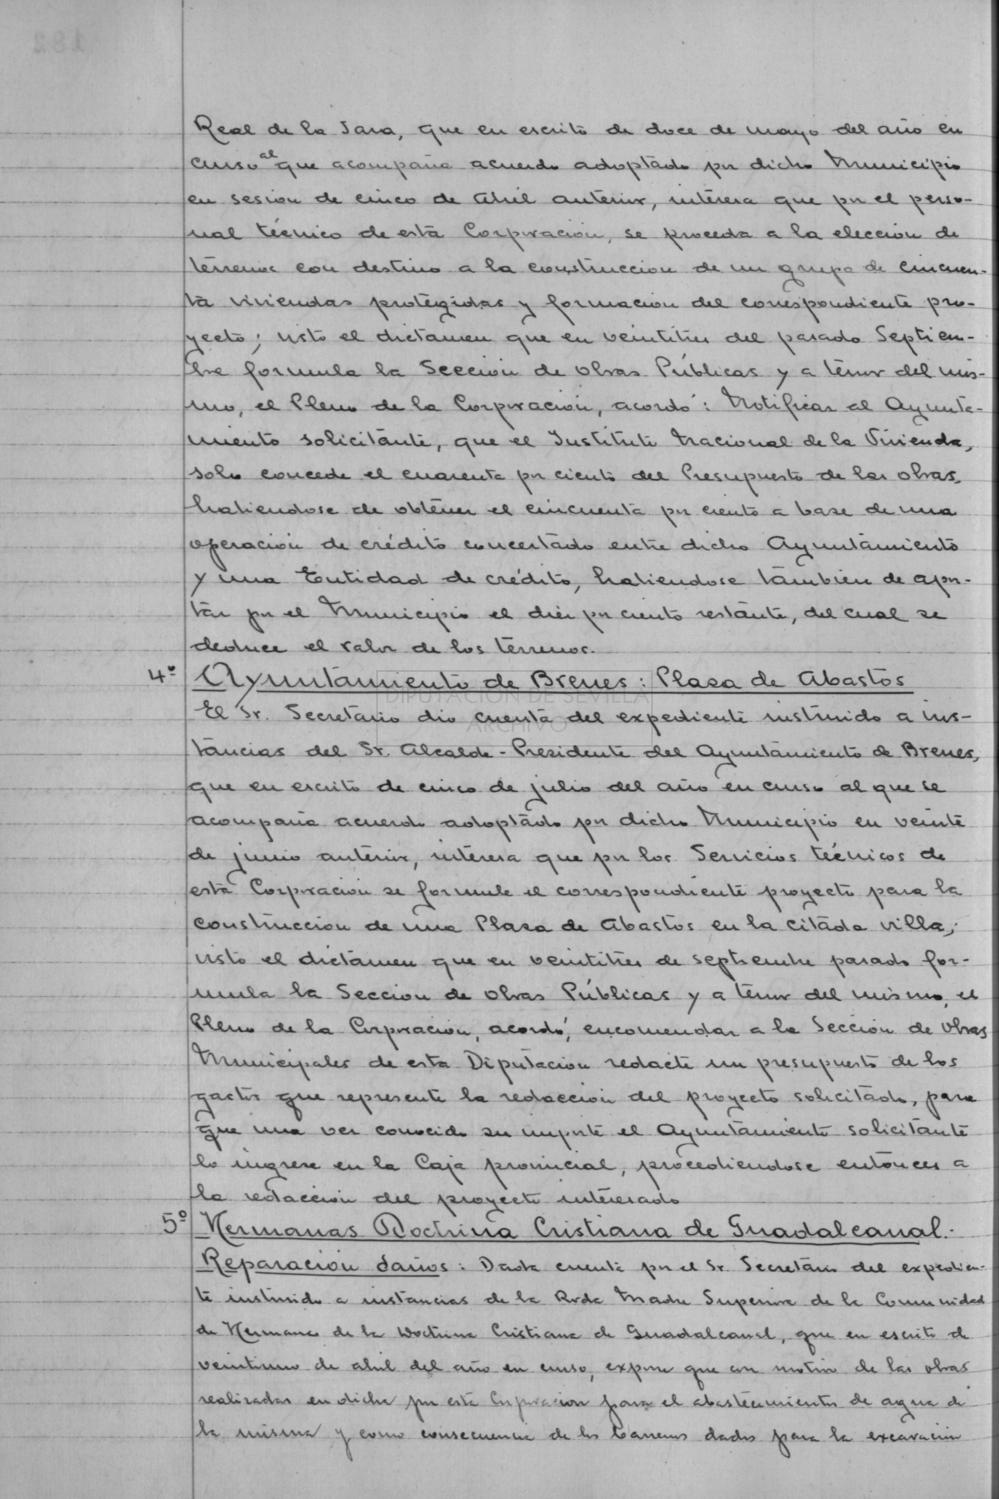 Real de la Jara, que en escrito de doce de mayo del año en
curso al que acompaña acuerdo adoptado por dicho Municipio
en sesion de cinco de Abril anterior, interesa que por el perso-
nal técnico de esta Corporación, se proceda a la elección de
terrenos con destino a la construccion de un grupo de cincuen-
ta viviendas protegidas y formacion del correspondiente pro-
yecto; visto el dictamen que en veintitres del pasado Septiem-
bre formula la Sección de Obras Públicas y a tenor del mis-
mo, el Pleno de la Corporación, acordó: Notificar al Ayunta-
miento solicitante, que el Instituto Nacional de la Vivienda,
solo concede el cuarenta por ciento del Presupuesto de las obras,
habiendose de obtener el cincuenta por ciento a base de una
operación de crédito concertado entre dicho Ayuntamiento
y una Entidad de crédito, habiendose tambien de apor-
tar por el Municipio el diez por ciento restante, del cual se
deduce el valor de los terrenos.
4º Ayuntamiento de Brenes: Plaza de Abastos
DIPUTACIÓN DE SEVILLA
ARCHIVO
El Sr. Secretario dio cuenta del expediente instruido a ins-
tancias del Sr. Alcalde-Presidente del Ayuntamiento de Brenes,
que en escrito de cinco de julio del año en curso al que se
acompaña acuerdo adoptado por dicho Municipio en veinte
de junio anterior, interesa que por los Servicios técnicos de
esta Corporacion se formule el correspondiente proyecto para la
construccion de una Plaza de Abastos en la citada villa;
visto el dictámen que en veintitres de septiembre pasado for-
mula la Seccion de Obras Públicas y a tenor del mismo, el
Pleno de la Corporacion, acordó, encomendar a la Sección de Obras
Municipales de esta Diputacion redacte un presupuesto de los
gastos que represente la redaccion del proyecto solicitado, para
que una vez conocido su importe el Ayuntamiento solicitante
lo ingrese en la Caja provincial, procediendose entonces a
la redacción del proyecto interesado
5º Hermanas Doctrina Cristiana de Guadalcanal.-
Reparación daños: Dada cuenta por el Sr. Secretario del expedien-
te instruido a instancias de la Rvda Madre Superiora de la Comunidad
de Hermanas de la Doctrina Cristiana de Guadalcanal, que en escrito de
veintiuno de abril del año en curso, expone que con motivo de las obras
realizadas en dicha por esta Corporacion para el abastecimiento de agua de
la misma y como consecuencia de los barrenos dados para la excavación